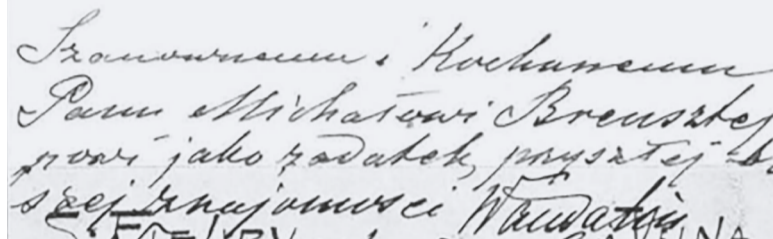 Szanownemu i Kochanemu
Panu Michałowi Brensztej
nowi jako zadatek, przyszłej
szej znajomości Wandalin